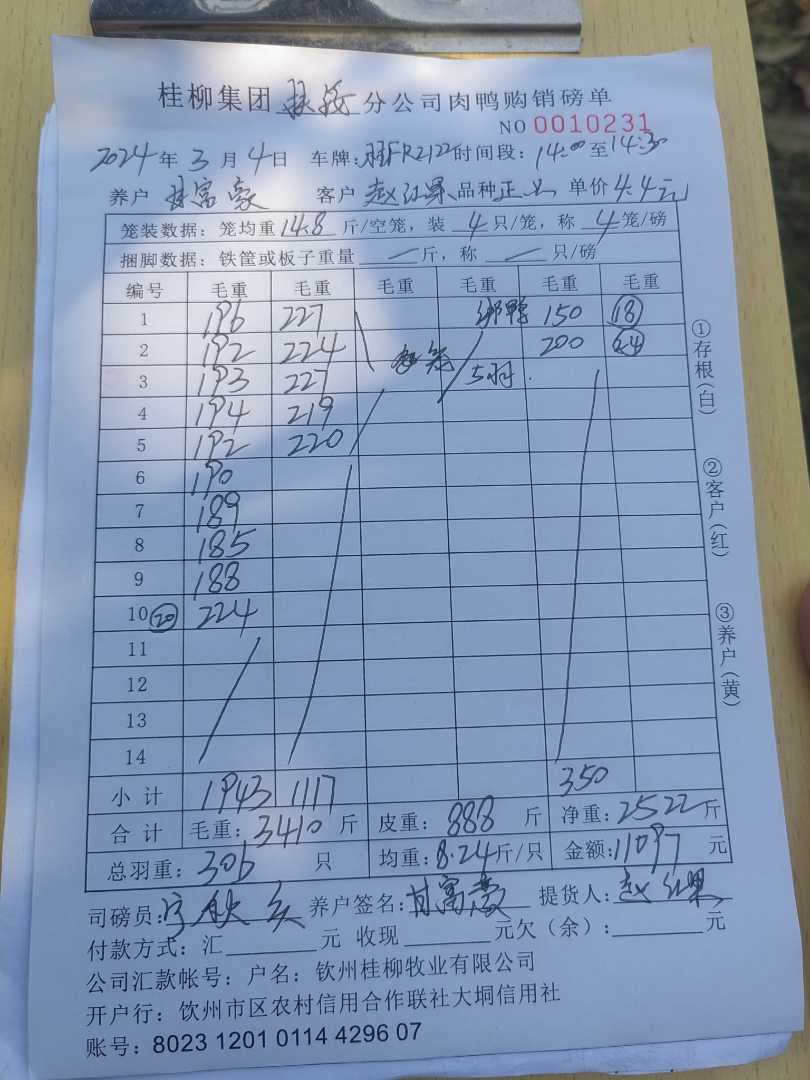 桂柳集团扶绥分公司肉鸭购销磅单
NO 0010231
2024年3月4日 车牌:FR2122 时间段:14:00至14:30
养户 甘富豪 客户 赵红果 品种 正 单价 4.4元
笼装数据: 笼均重 14.8 斤/空笼, 装 4 只/笼, 称 4 笼/磅
捆脚数据: 铁筐或板子重量 — 斤, 称 — 只/磅
编号 毛重 毛重 毛重 毛重 毛重 毛重
1 196 227 绑鸭 150 18
2 192 224 200 24
3 193 227 5羽
4 194 219
5 192 220
6 190
7 189
8 185
9 188
10 20 224
11
12
13
14
小计 1943 1117 350
合计 毛重: 3410 斤 皮重: 888 斤 净重: 2522 斤
总羽重: 306 只 均重: 8.24 斤/只 金额: 11097 元
司磅员: 养户签名: 甘富豪 提货人: 赵红果
付款方式: 汇 元 收现 元 欠(余): 元
公司汇款帐号: 户名: 钦州桂柳牧业有限公司
开户行: 饮州市区农村信用合作联社大垌信用社
账号: 8023 1201 0114 4296 07
①存根(白)
②客户(红)
③养户(黄)